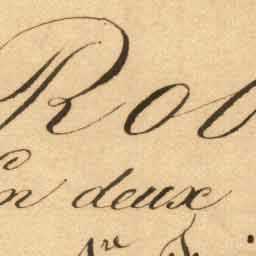 Rob
En deux
1re